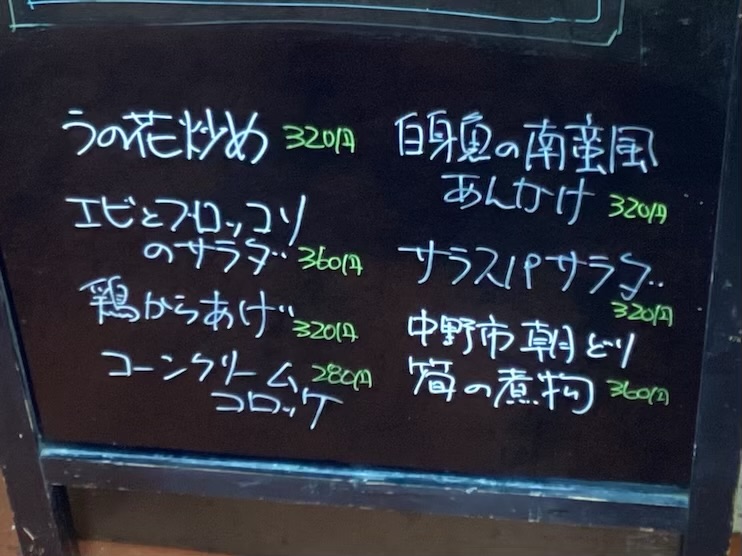 うの花炒め 320円
エビとブロッコリ
のサラダ 360円
鶏からあげ 320円
コーンクリーム 280円
コロッケ
白身魚の南蛮風
あんかけ 320円
サラスパサラダ
320円
中野市朝どり
筍の煮物 360円